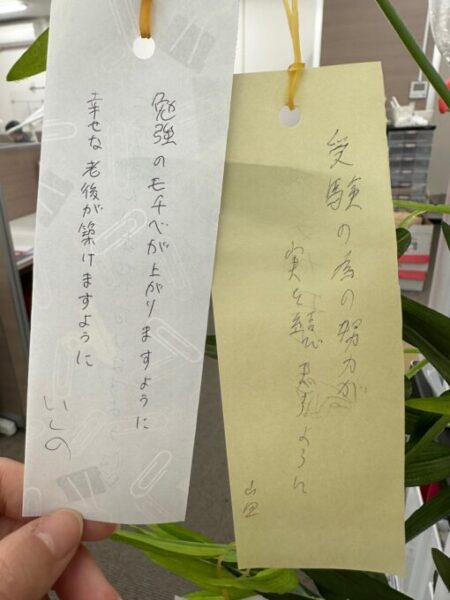 勉強のモチベが上がりますように
幸せな老後が築けますように
いしの
受験の為の努力が
実を結びますように
山田